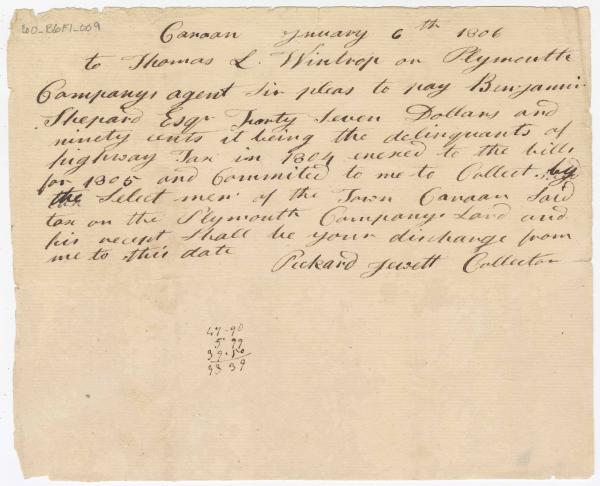 60-R6F1-009
Canaan Jnuary 6th 1806
to Thomas L. Wintrop on Plymouth
Companys agent Sir pleas to pay Benjamin
Shepard Esqr Seven Dollars and
ninety cents it being the delinquants of
highway Tax in 1804 enexed to the bills
for 1805 and Commited to me to Collect by
the Select men of the Town Canaan Said
tax on the Plymouth Companys Land and
his recept Shall be your discharge from
me to this date
Pickard Jewett Collector
47-90
5 99
39.50
93 39